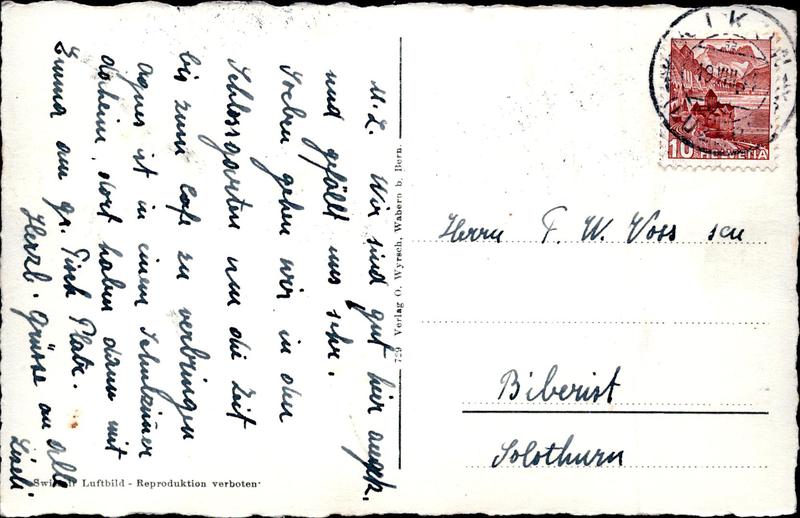 M. L. Wir sind gut hier angek.
und gefällt uns sehr.
Soeben gehen wir in den
Schlossgarten um die Zeit
bis zum Cafe zu verbringen
Agnes ist in einem Schulzimmer
daheim, dort haben dann mit
Emma am gr. Tisch Platz.
Herzl. Grüsse an alle
Liseli
729 Verlag O. Wyrsch, Wabern b. Bern.
Swissair Luftbild - Reproduktion verboten
10 HELVETIA
19.VIII
Herrn F. W. Voss sen
Biberist
Solothurn